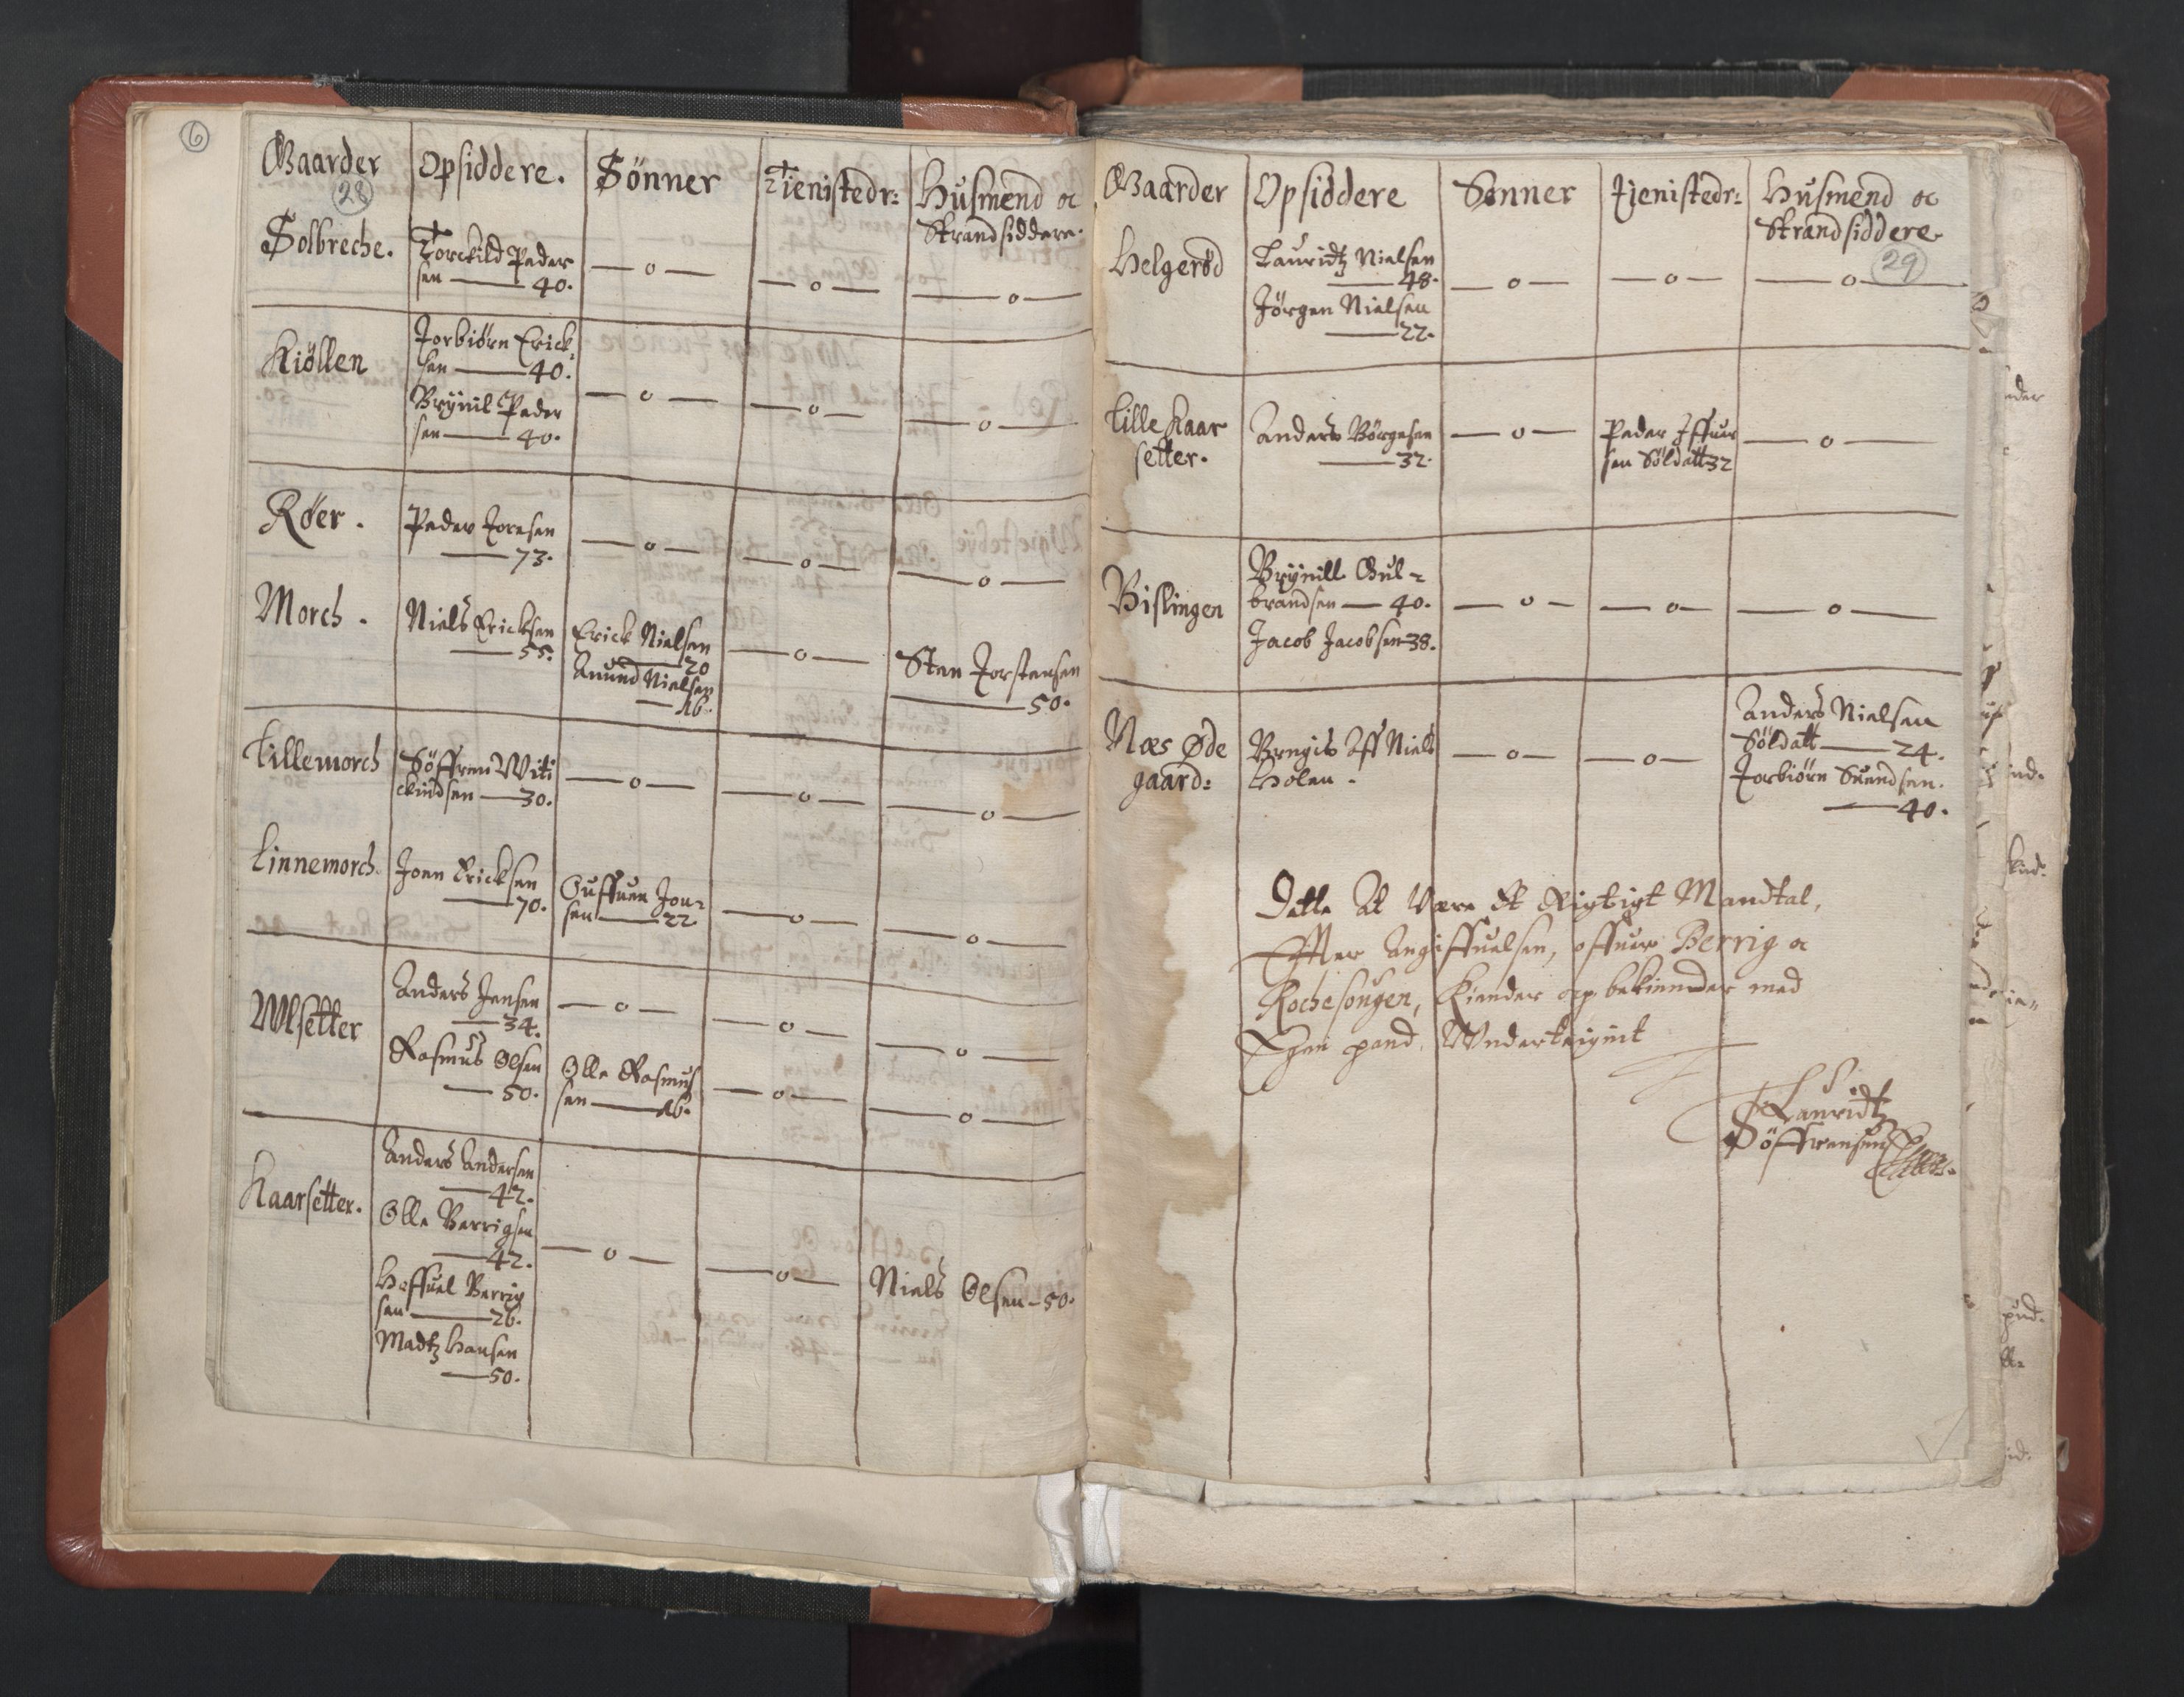 6
Gaarder
28
Opsiddere.
Sönner
Tienistedr:
Husmend oc
Strandsiddere.
Solbreche.
Torckild Peder
sen — 40.
— o —
— o —
— o —
Kiöllen
Torbiörn Erick-
sen — 40.
Brÿnil Peder
sen — 40.
— o —
— o —
— o —
Røer.
Peder Joresen
— 73.
— o —
— o —
— o —
Morch.
Niels Ericksen
— 55.
Erick Nielsen
— 20
Anund Nielsen
— 16.
— o —
Sten Torstensen
— 50.
Lillemorch
Söffren Witi
ckindsen — 30.
— o —
— o —
— o —
Linnemorch.
Joen Ericksen
— 70.
Guffuen Jon-
sen — 22
— o —
— o —
Wlsetter
Anders Jensen
— 34.
— o —
— o —
— o —
Rasmus Olsen
— 50.
Olle Rasmus
sen — 16.
— o —
— o —
Kaarsetter.
Anders Andersen
— 42.
Olle Berrigsen
— 42.
Heffuel Berrig
sen — 26.
Madtz Hansen
— 50.
— o —
— o —
Niels Olsen — 50.
Gaarder
Opsiddere
Sønner
Tjenistedr:
Husmend oc
Strandsiddere.
29
Helgerød
Lauridtz Nielsen
— 48.
Jörgen Nielsen
— 22.
— o —
— o —
— o —
Lille Kaar
setter.
Anders Börgesen
— 32.
— o —
Peder Iffuer
sen Söldatt 32
— o —
Bislingen
Brÿnill Gul-
brandsen — 40.
Jacob Jacobsen 38.
— o —
— o —
— o —
Næs Øde
gaard:
Brugis Aff Niels
Holen.
— o —
— o —
Anders Nielsen
Söldatt — 24.
Torbiörn Suendsen.
— 40.
Dette At Være Et Rigtigt Mandtal,
Efter Angiffuelsen, offuer Berrig oc
Rochesougen, Kiender oc bekiender med
Egen hand. Vnderteignit
Lauridtz
Söffrensen